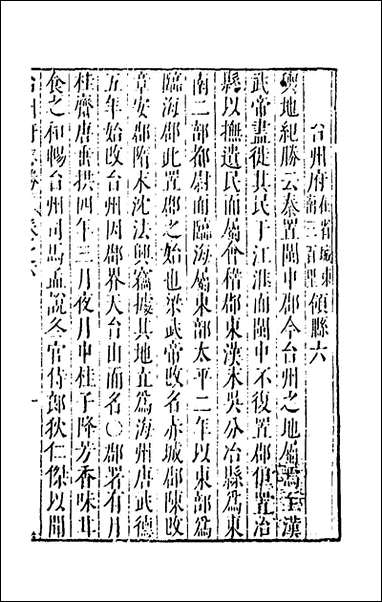 台州府在省城東南三百里領縣六
輿地紀勝云秦置閩中郡今台州之地屬焉至漢
武帝盡徙其民于江淮而閩中不復置郡但置冶
縣以撫遺民而屬會稽郡東漢末吳分冶縣爲東
南二部都尉而臨海屬東部太平二年以東部爲
臨海郡此置郡之始也梁武帝改名赤城郡陳改
章安郡隋末沈法興竊據其地直爲海州唐武德
五年始改台州因郡界天台山而名〇郡署有月
桂齊唐垂拱四年三月夜月中桂子降芳香味甘
食之和暢台州司馬孟詵冬官侍郎狄仁傑以聞